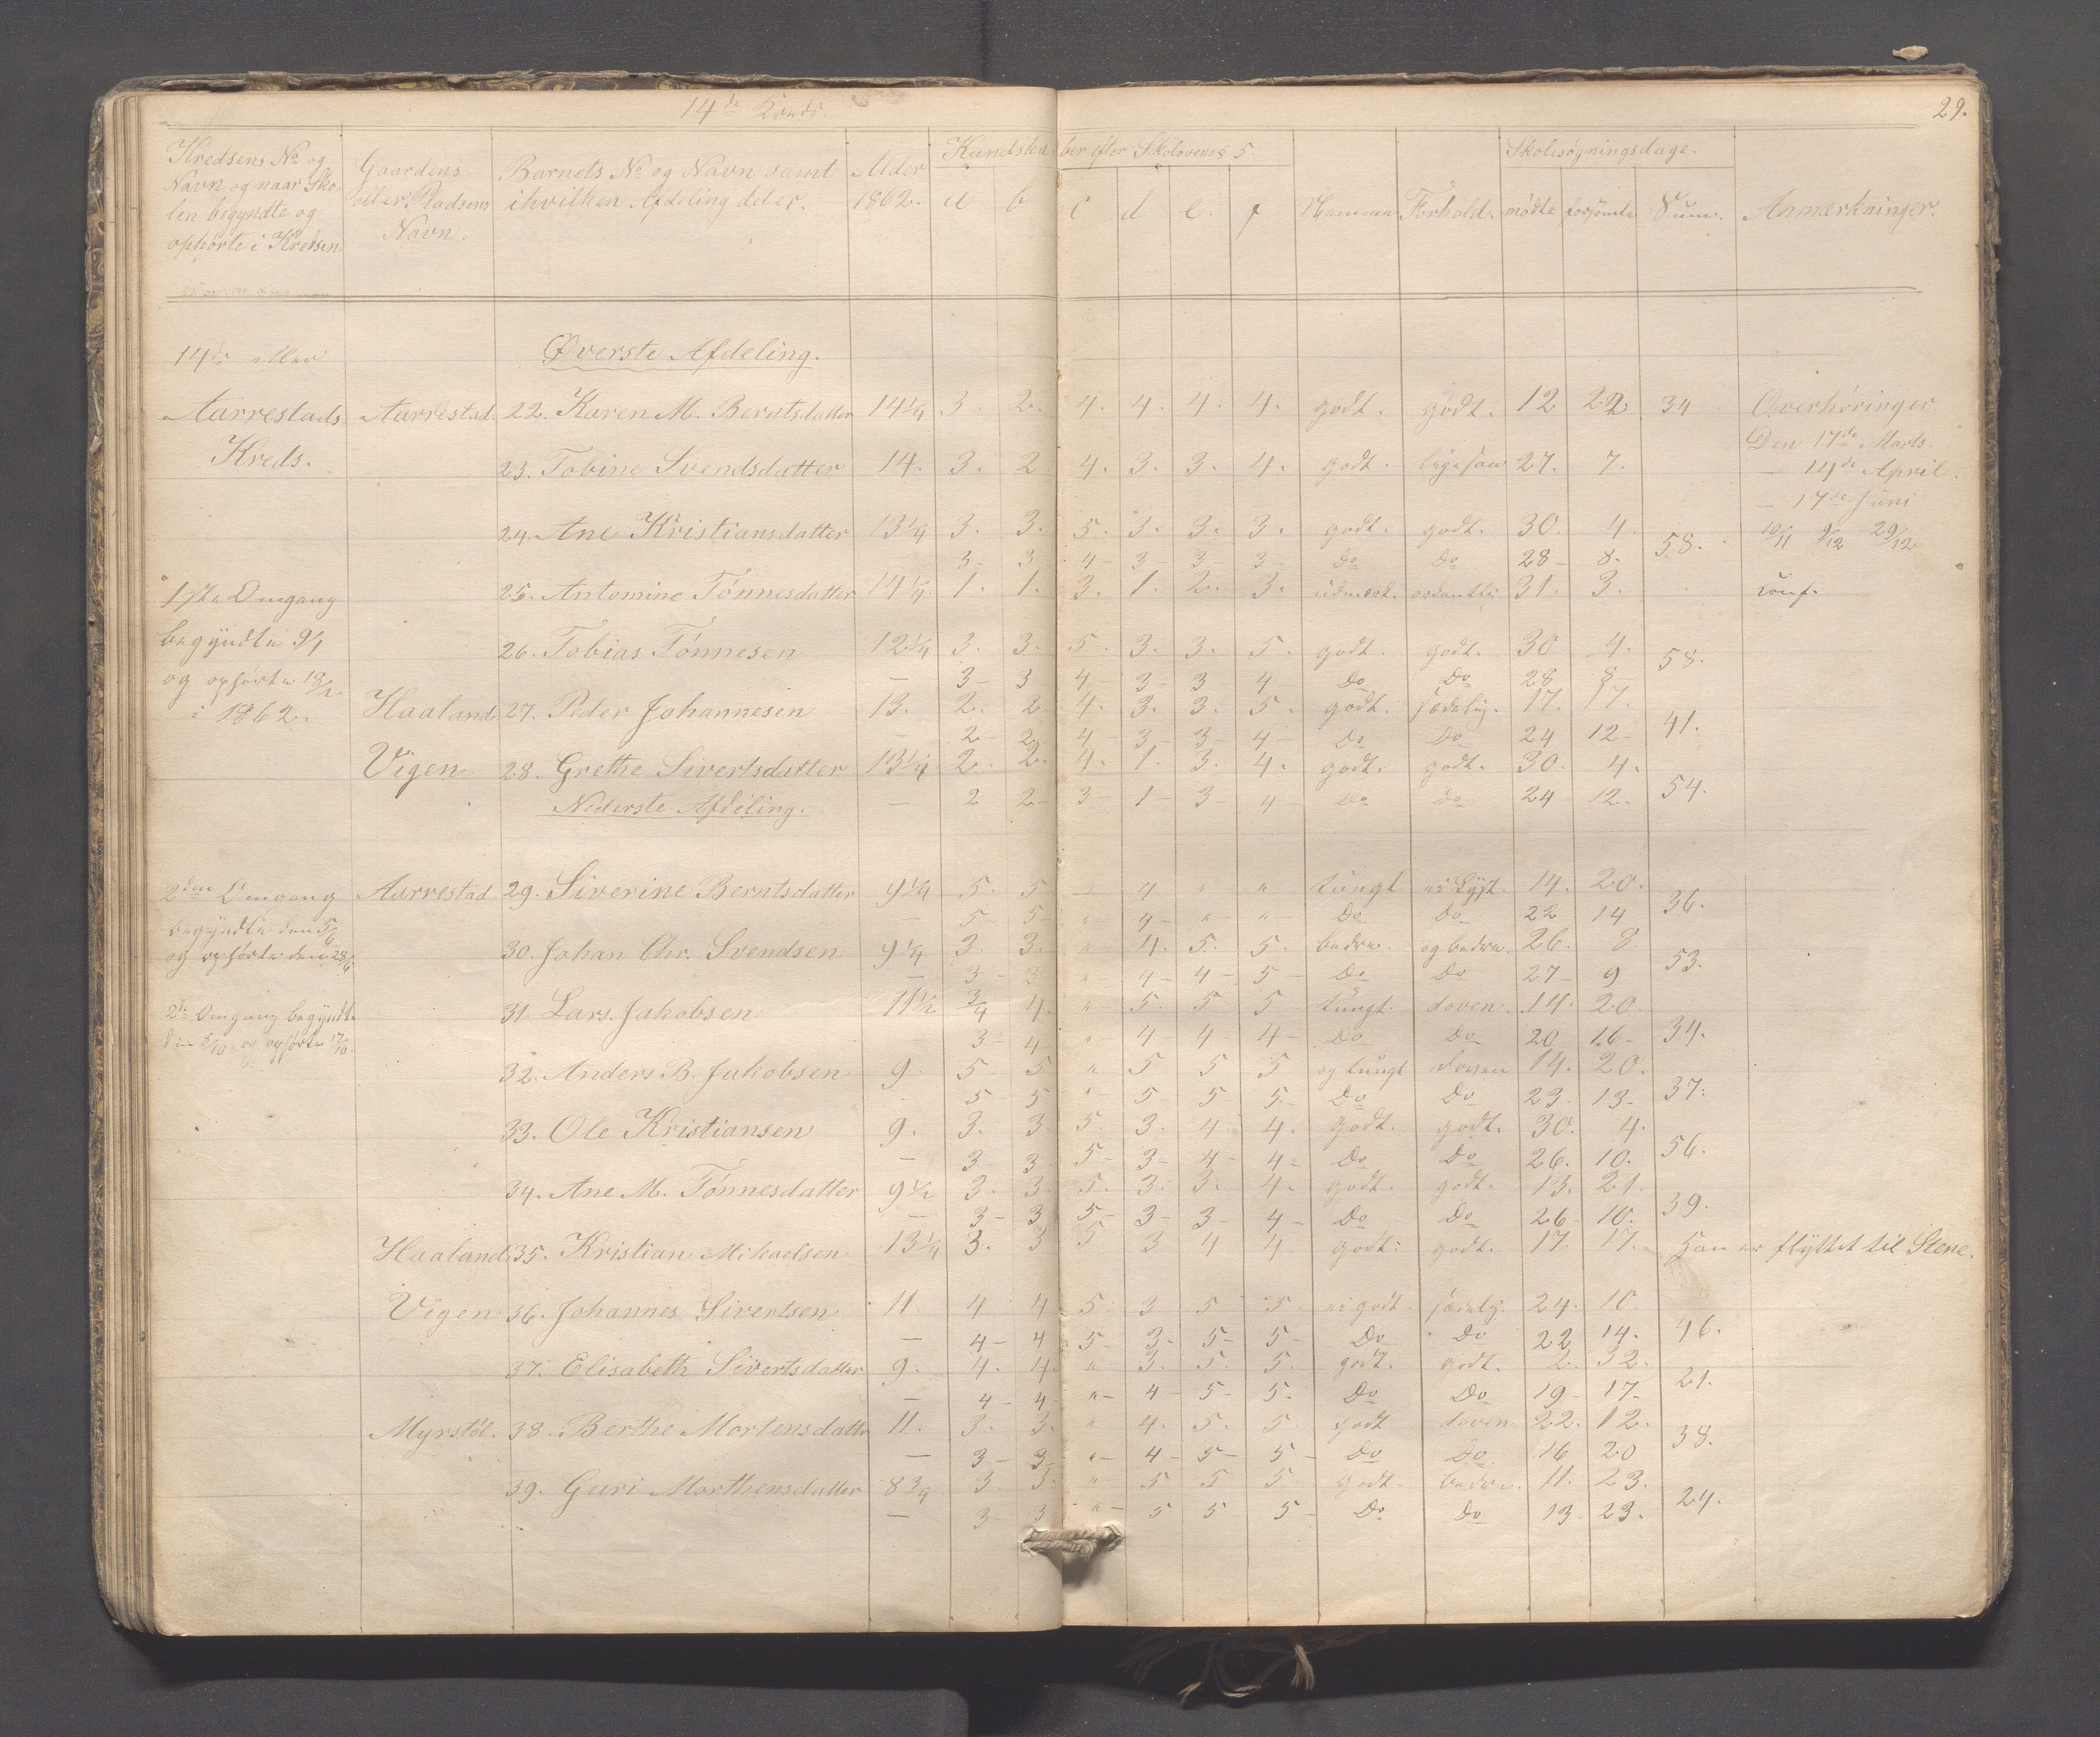 14de Kreds.
29.
Kredsens No og Navn og naar Skolen begyndte og ophørte i Kredsen
Gaardens eller Pladsens Navn.
Barnets No og Navn samt i hvilken Afdeling det er.
Alder 1862.
Kundskaber efter Skolovens § 5.
a b c d e. f
Forhold.
Skolesøgningsdage.
mødte forsømte
Sum.
Anmærkninger.
14de eller
Øverste Afdeling.
Aarrestads Aarrestad. 22. Karen M. Berntsdatter 14 1/4 3 2. 4. 4. 4. 4. godt. godt. 12 22 34 Overhøringer.
Den 17de Marts.
Kreds. 23. Tobine Svendsdatter 14. 3. 2 4. 3. 3. 4. godt. ligesaa 27. 7. — 14de April.
— 17de Juni
24. Ane Kristiansdatter 13 1/4 3. 3. 5. 3. 3. 3. godt. godt. 30. 4. 58. 10/11 9/12 29/12
3- 3 4- 3- 3- 3- Do Do 28- 8-
1ste Omgang 25. Antomine Tønnesdatter 14 1/4 1. 1. 3. 1. 2. 3. udmærk. ordentlig 31. 3. konf.
begyndte 9/1 26. Tobias Tønnesen 12 1/4 3. 3. 5. 3. 3. 5. godt. godt. 30 4. 58.
og ophørte 18/2 — 3- 3 4- 3- 3- 4 Do Do 28 8-
i 1862. Haaland 27. Peder Johannesen 13. 2. 2 4. 3. 3. 5. godt. sædelig. 17. 17. 41.
— 2- 2- 4- 3- 3- 4- Do Do 24 12-
Vigen 28. Grethe Sivertsdatter 13 1/4 2. 2. 4. 1. 3. 4. godt. godt. 30. 4. 54.
Nederste Afdeling. — 2 2- 3- 1- 3- 4- Do Do 24 12-
2den Omgang Aarrestad 29. Siverine Berntsdatter 9 1/4 5. 5 " 4 " " tungt ei Lyst. 14. 20. 36.
begyndte den 5/6 — 5- 5- "- 4- "- "- Do Do 22 14
og ophørte den 28/6 30. Johan Chr. Svendsen 9 1/4 3. 3. " 4. 5. 5. bedre. og bedre. 26. 8. 53.
— 3- 3 "- 4- 4- 5- Do Do 27- 9
31. Lars Jakobsen 11 1/2 3/4 4. " 5. 5 5 tungt. doven. 14. 20. 34.
2de Omgang begyndte
den 8/10 og ophørte 17/10.
3- 4 "- 4- 4- 4- Do Do 20 16-
32. Anders B. Jakobsen 9. 5 5 " 5 5 5 og tungt doven 14. 20. 37.
5- 5 "- 5- 5- 5- Do Do 23- 13-
33. Ole Kristiansen 9. 3. 3. 5. 3. 4. 4. godt. godt. 30. 4. 56.
— 3 3- 5- 3- 4- 4- Do Do 26. 10.
34. Ane M. Tønnesdatter 9 1/2 3. 3. 5. 3. 3. 4. godt. godt. 13. 21. 39.
— 3- 3 5- 3- 3- 4- Do Do 26- 10.
Haaland 35. Kristian Mikaelsen 13 1/4 3. 3 5 3 4 4 godt. godt. 17. 17. Han er flyttet til Stene.
Vigen 36. Johannes Sivertsen 11 4 4 5. 3 5 5. ei godt. sædelig. 24. 10. 46.
— 4- 4 5- 3- 5- 5- Do Do 22 14-
37. Elisabeth Sivertsdatter 9. 4. 4. " 3. 5. 5. godt. godt. 2. 32. 21.
— 4- 4- "- 4- 5- 5- Do Do 19- 17-
Myrstøl. 38. Berthe Mortensdatter 11. 3. 3. " 4. 5. 5 godt doven. 22. 12. 38.
— 3- 3 "- 4- 5- 5- Do Do 16 20
39. Guri Morthensdatter 8 3/4 3 3. " 5 5 5 godt. bedre. 11. 23. 24.
— 3 3 "- 5 5 5- Do Do 13 23.